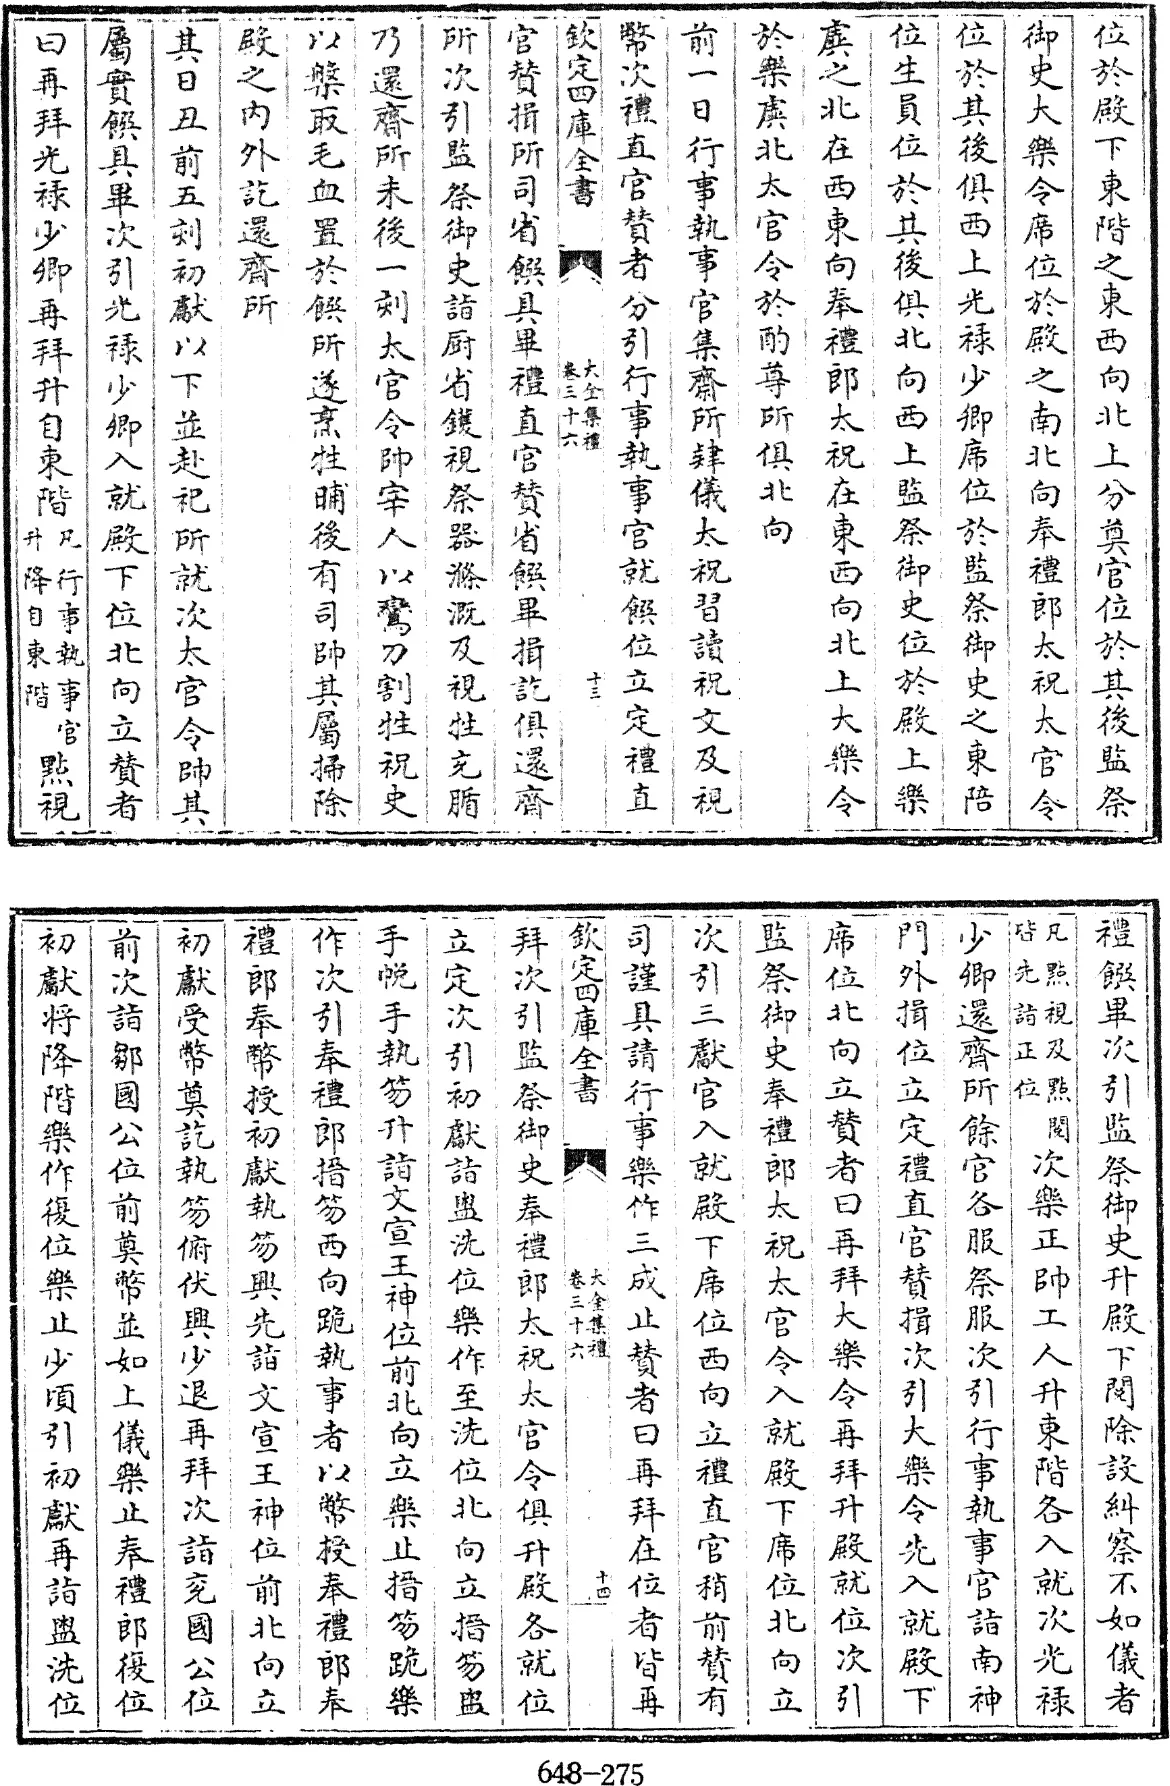 位於殿下東階之東西向北上分奠官位於其後監祭
御史大樂令席位於殿之南北向奉禮郎太祝太官令
位於其後俱西上光禄少卿席位於監祭御史之東陪
位生員位於其後俱北向西上監祭御史位於殿上樂
虡之北在西東向奉禮郎太祝在東西向北上大樂令
於樂虡北太官令於酌尊所俱北向
前一日行事執事官集齋所肄儀太祝習讀祝文及視
幣次禮直官贊者分引行事執事官就饌位立定禮直
欽定四庫全書
大金集禮
卷三十六
十三
官贊揖所司省饌具畢禮直官贊省饌畢揖訖俱還齋
所次引監祭御史詣厨省鑊視祭器滌溉及視牲充腯
乃還齋所未後一刻太官令帥宰人以鸞刀割牲祝史
以槃取毛血置於饌所遂烹牲晡後有司帥其屬掃除
殿之内外訖還齋所
其日丑前五刻初獻以下並赴祀所就次太官令帥其
屬實饌具畢次引光禄少卿入就殿下位北向立贊者
曰再拜光禄少卿再拜升自東階凡行事執事官升降自東階點視
禮饌畢次引監祭御史升殿下閱除設糾察不如儀者
凡點視及點閱皆先詣正位次樂正帥工人升東階各入就次光禄
少卿還齋所餘官各服祭服次引行事執事官詣南神
門外揖位立定禮直官贊揖次引大樂令先入就殿下
席位北向立贊者曰再拜大樂令再拜升殿就位次引
監祭御史奉禮郎太祝太官令入就殿下席位北向立
次引三獻官入就殿下席位西向立禮直官稍前贊有
司謹具請行事樂作三成止贊者曰再拜在位者皆再
欽定四庫全書
大金集禮
卷三十六
十四
拜次引監祭御史奉禮郎太祝太官令俱升殿各就位
立定次引初獻詣盥洗位樂作至洗位北向立搢笏盥
手帨手執笏升詣文宣王神位前北向立樂止搢笏跪樂
作次引奉禮郎搢笏西向跪執事者以幣授奉禮郎奉
禮郎奉幣授初獻執笏興先詣文宣王神位前北向立
初獻受幣奠訖執笏俯伏興少退再拜次詣兖國公位
前次詣鄒國公位前奠幣並如上儀樂止奉禮郎復位
初獻將降階樂作復位樂止少頃引初獻再詣盥洗位
648-275